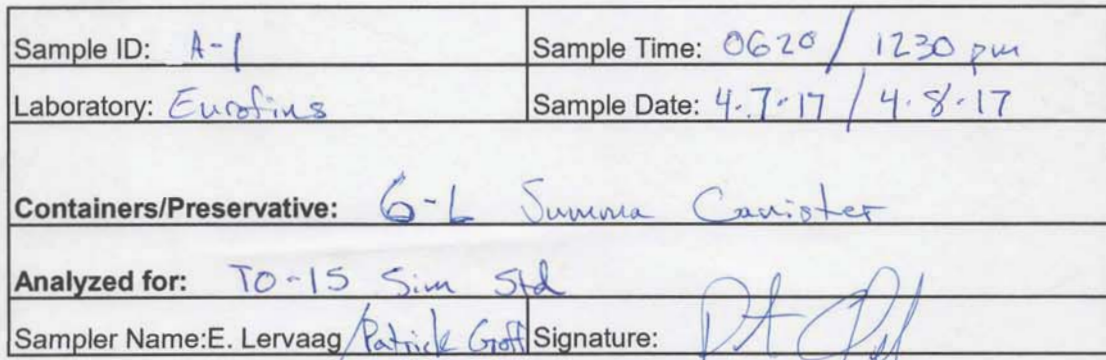 Sample ID: A-1 Sample Time: 0620 / 1230 pm
Laboratory: Eurofins Sample Date: 4.7.17 / 4.8.17
Containers/Preservative: 6-L Summa Canister
Analyzed for: TO-15 Sim Std
Sampler Name:E. Lervaag/Patrick Goff Signature: